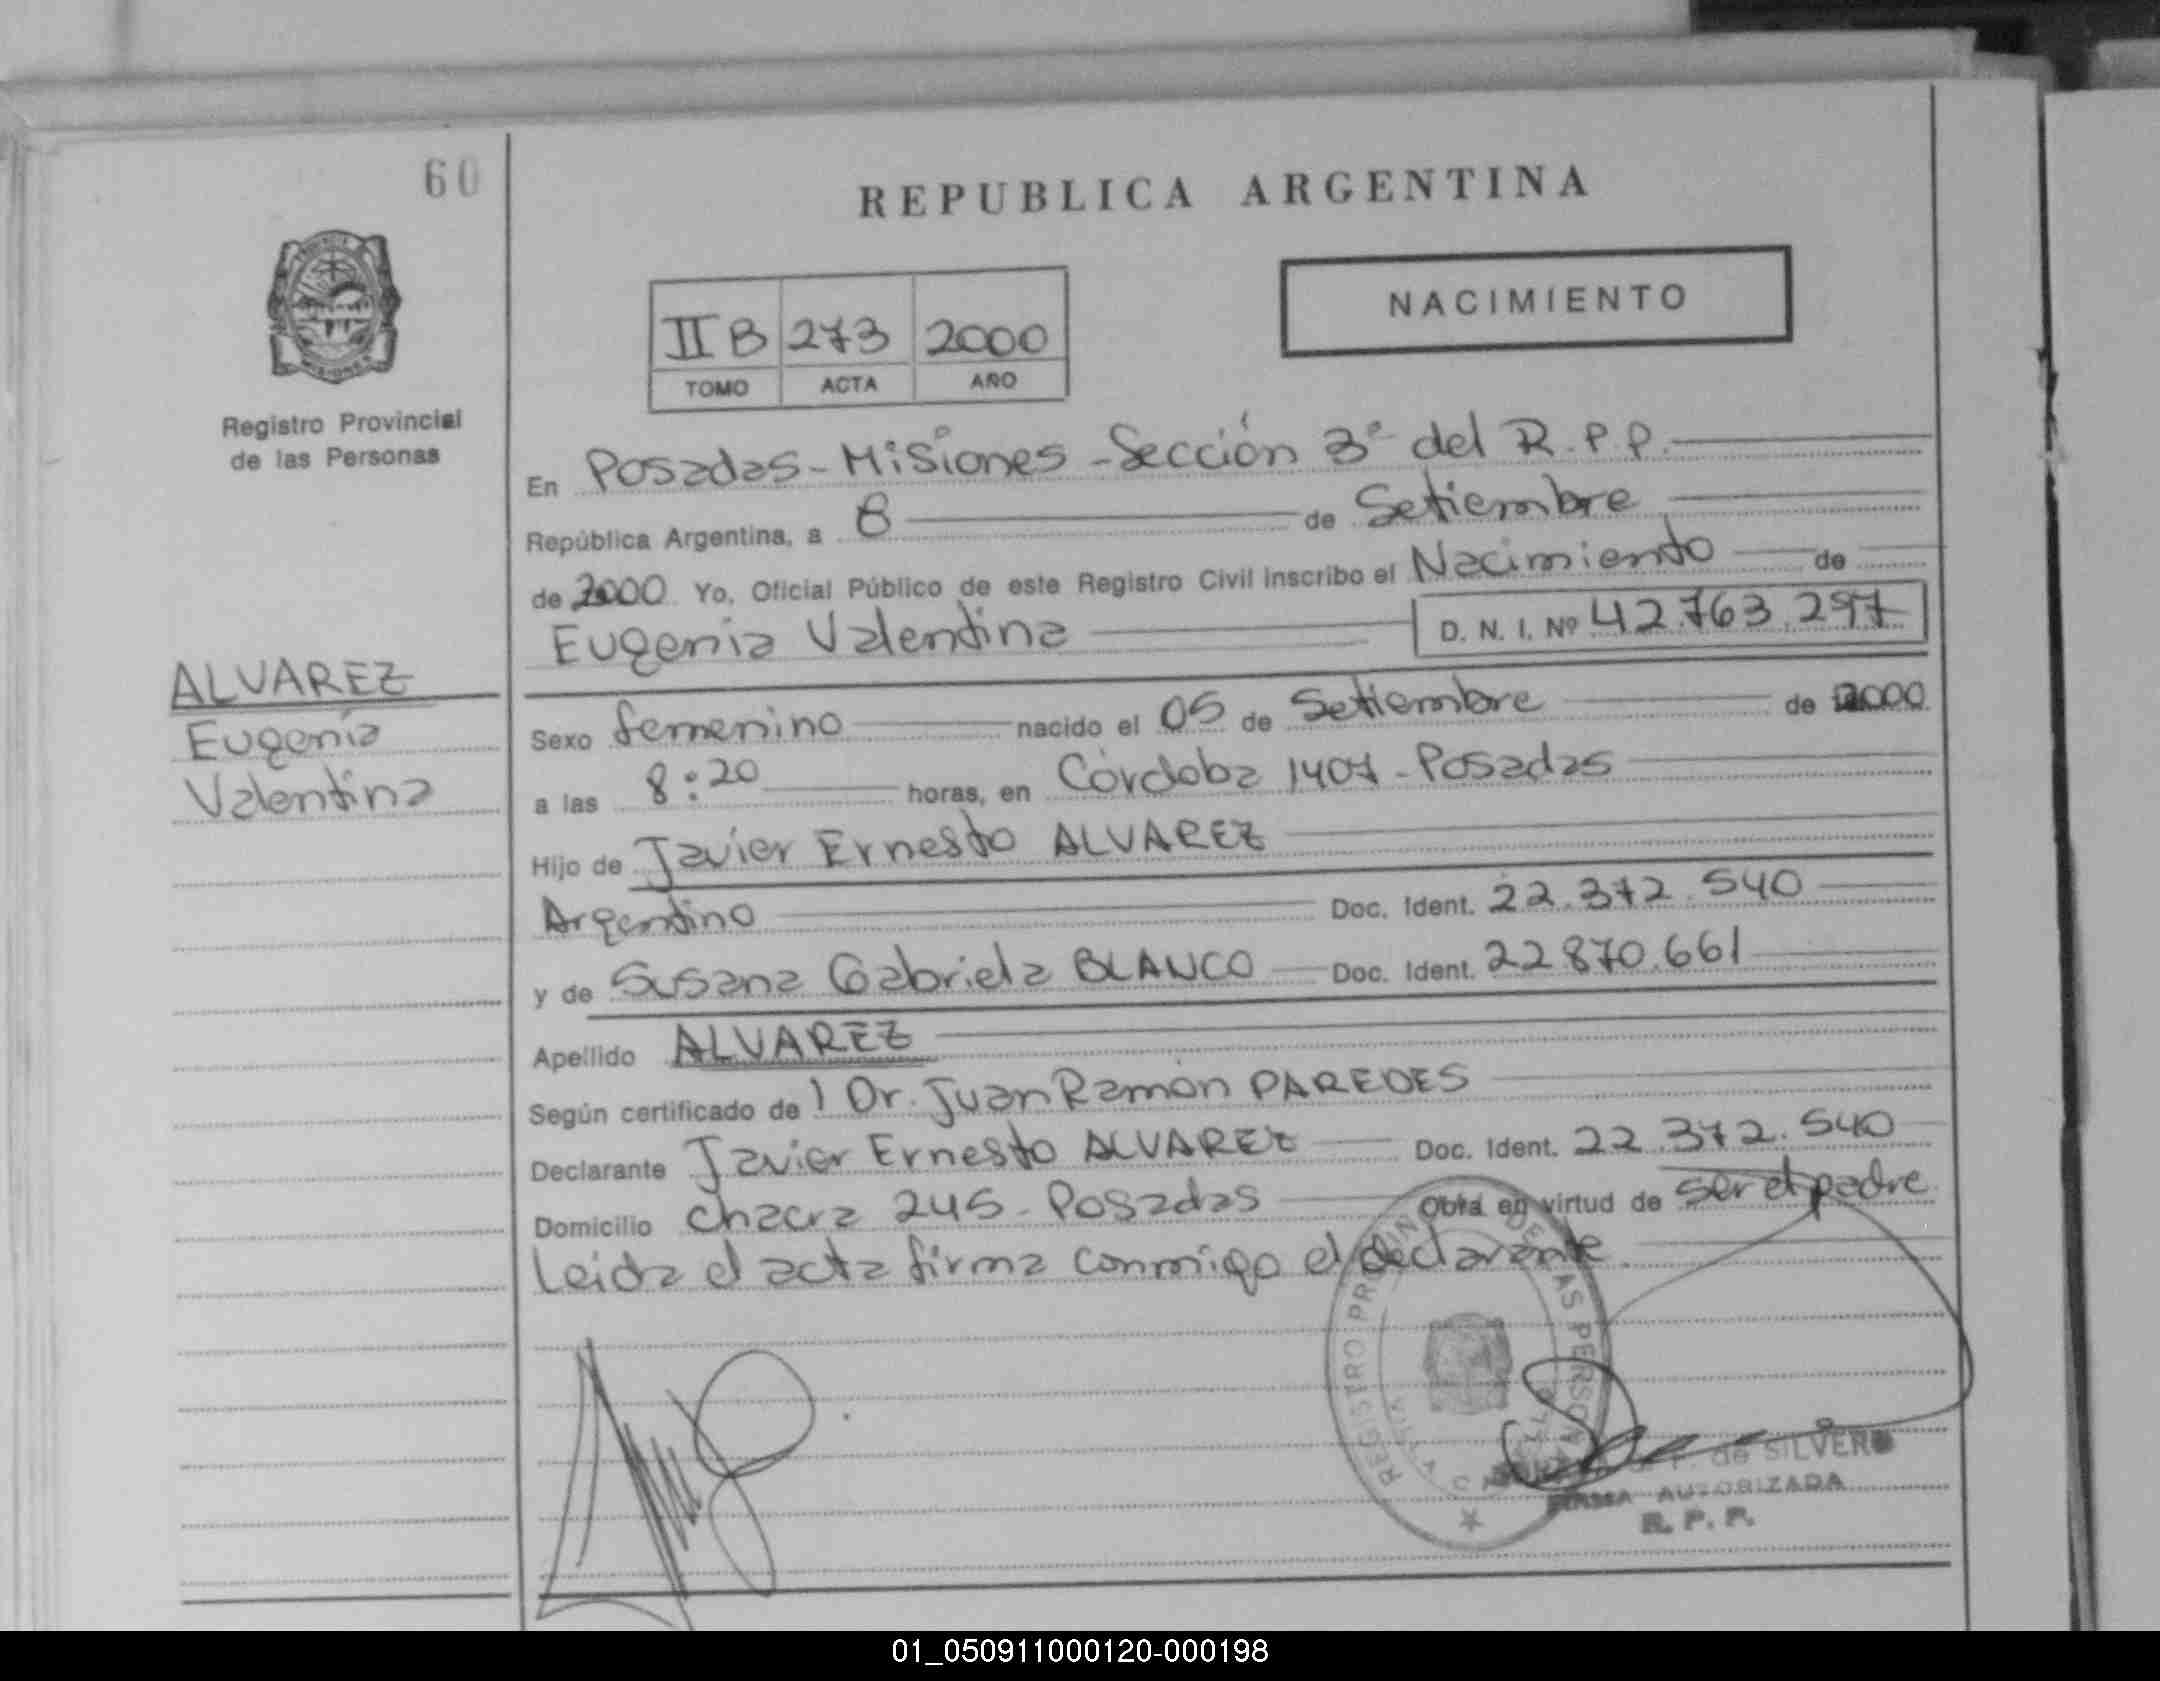 60
REPUBLICA ARGENTINA
NACIMIENTO
II B 273 2000
TOMO ACTA AÑO
Registro Provincial
de las Personas
En Posadas - Misiones - Sección 3ª del R.P.P.
República Argentina, a 8 de Setiembre
de 2000 Yo, Oficial Público de este Registro Civil inscribo el Nacimiento de
Eugenia Valentina D. N. I. Nº 42.763.297
ALVAREZ
Eugenia
Valentina
Sexo femenino nacido el 05 de Setiembre de 2000
a las 8:20 horas, en Córdoba 1407 - Posadas
Hijo de Javier Ernesto ALVAREZ
Argentino Doc. Ident. 22.372.540
y de Susana Gabriela BLANCO Doc. Ident. 22870.661
Apellido ALVAREZ
Según certificado de l Dr. Juan Ramón PAREDES
Declarante Javier Ernesto ALVAREZ Doc. Ident. 22.372.540
Domicilio Chacra 245 - Posadas Obra en virtud de ser el padre
Leida el acta firma conmigo el declarante.
REGISTRO PROVINCIAL DE LAS PERSONAS
de SILVERO
FIRMA AUTORIZADA
R. P. P.
01_050911000120-000198